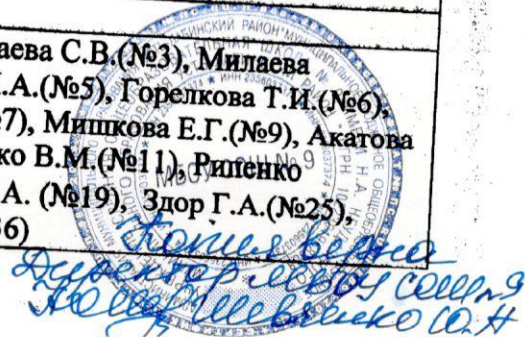 аева С.В.(№3), Милаева
.А.(№5), Горелкова Т.И.(№6),
№7), Мишкова Е.Г.(№9), Акатова
ко В.М.(№11), Рипенко
.А. (№19), Здор Г.А.(№25),
36)
МБОУ СОШ № 9
Копия верна
Директор МБОУ СОШ №9
Шевченко Ю.Н